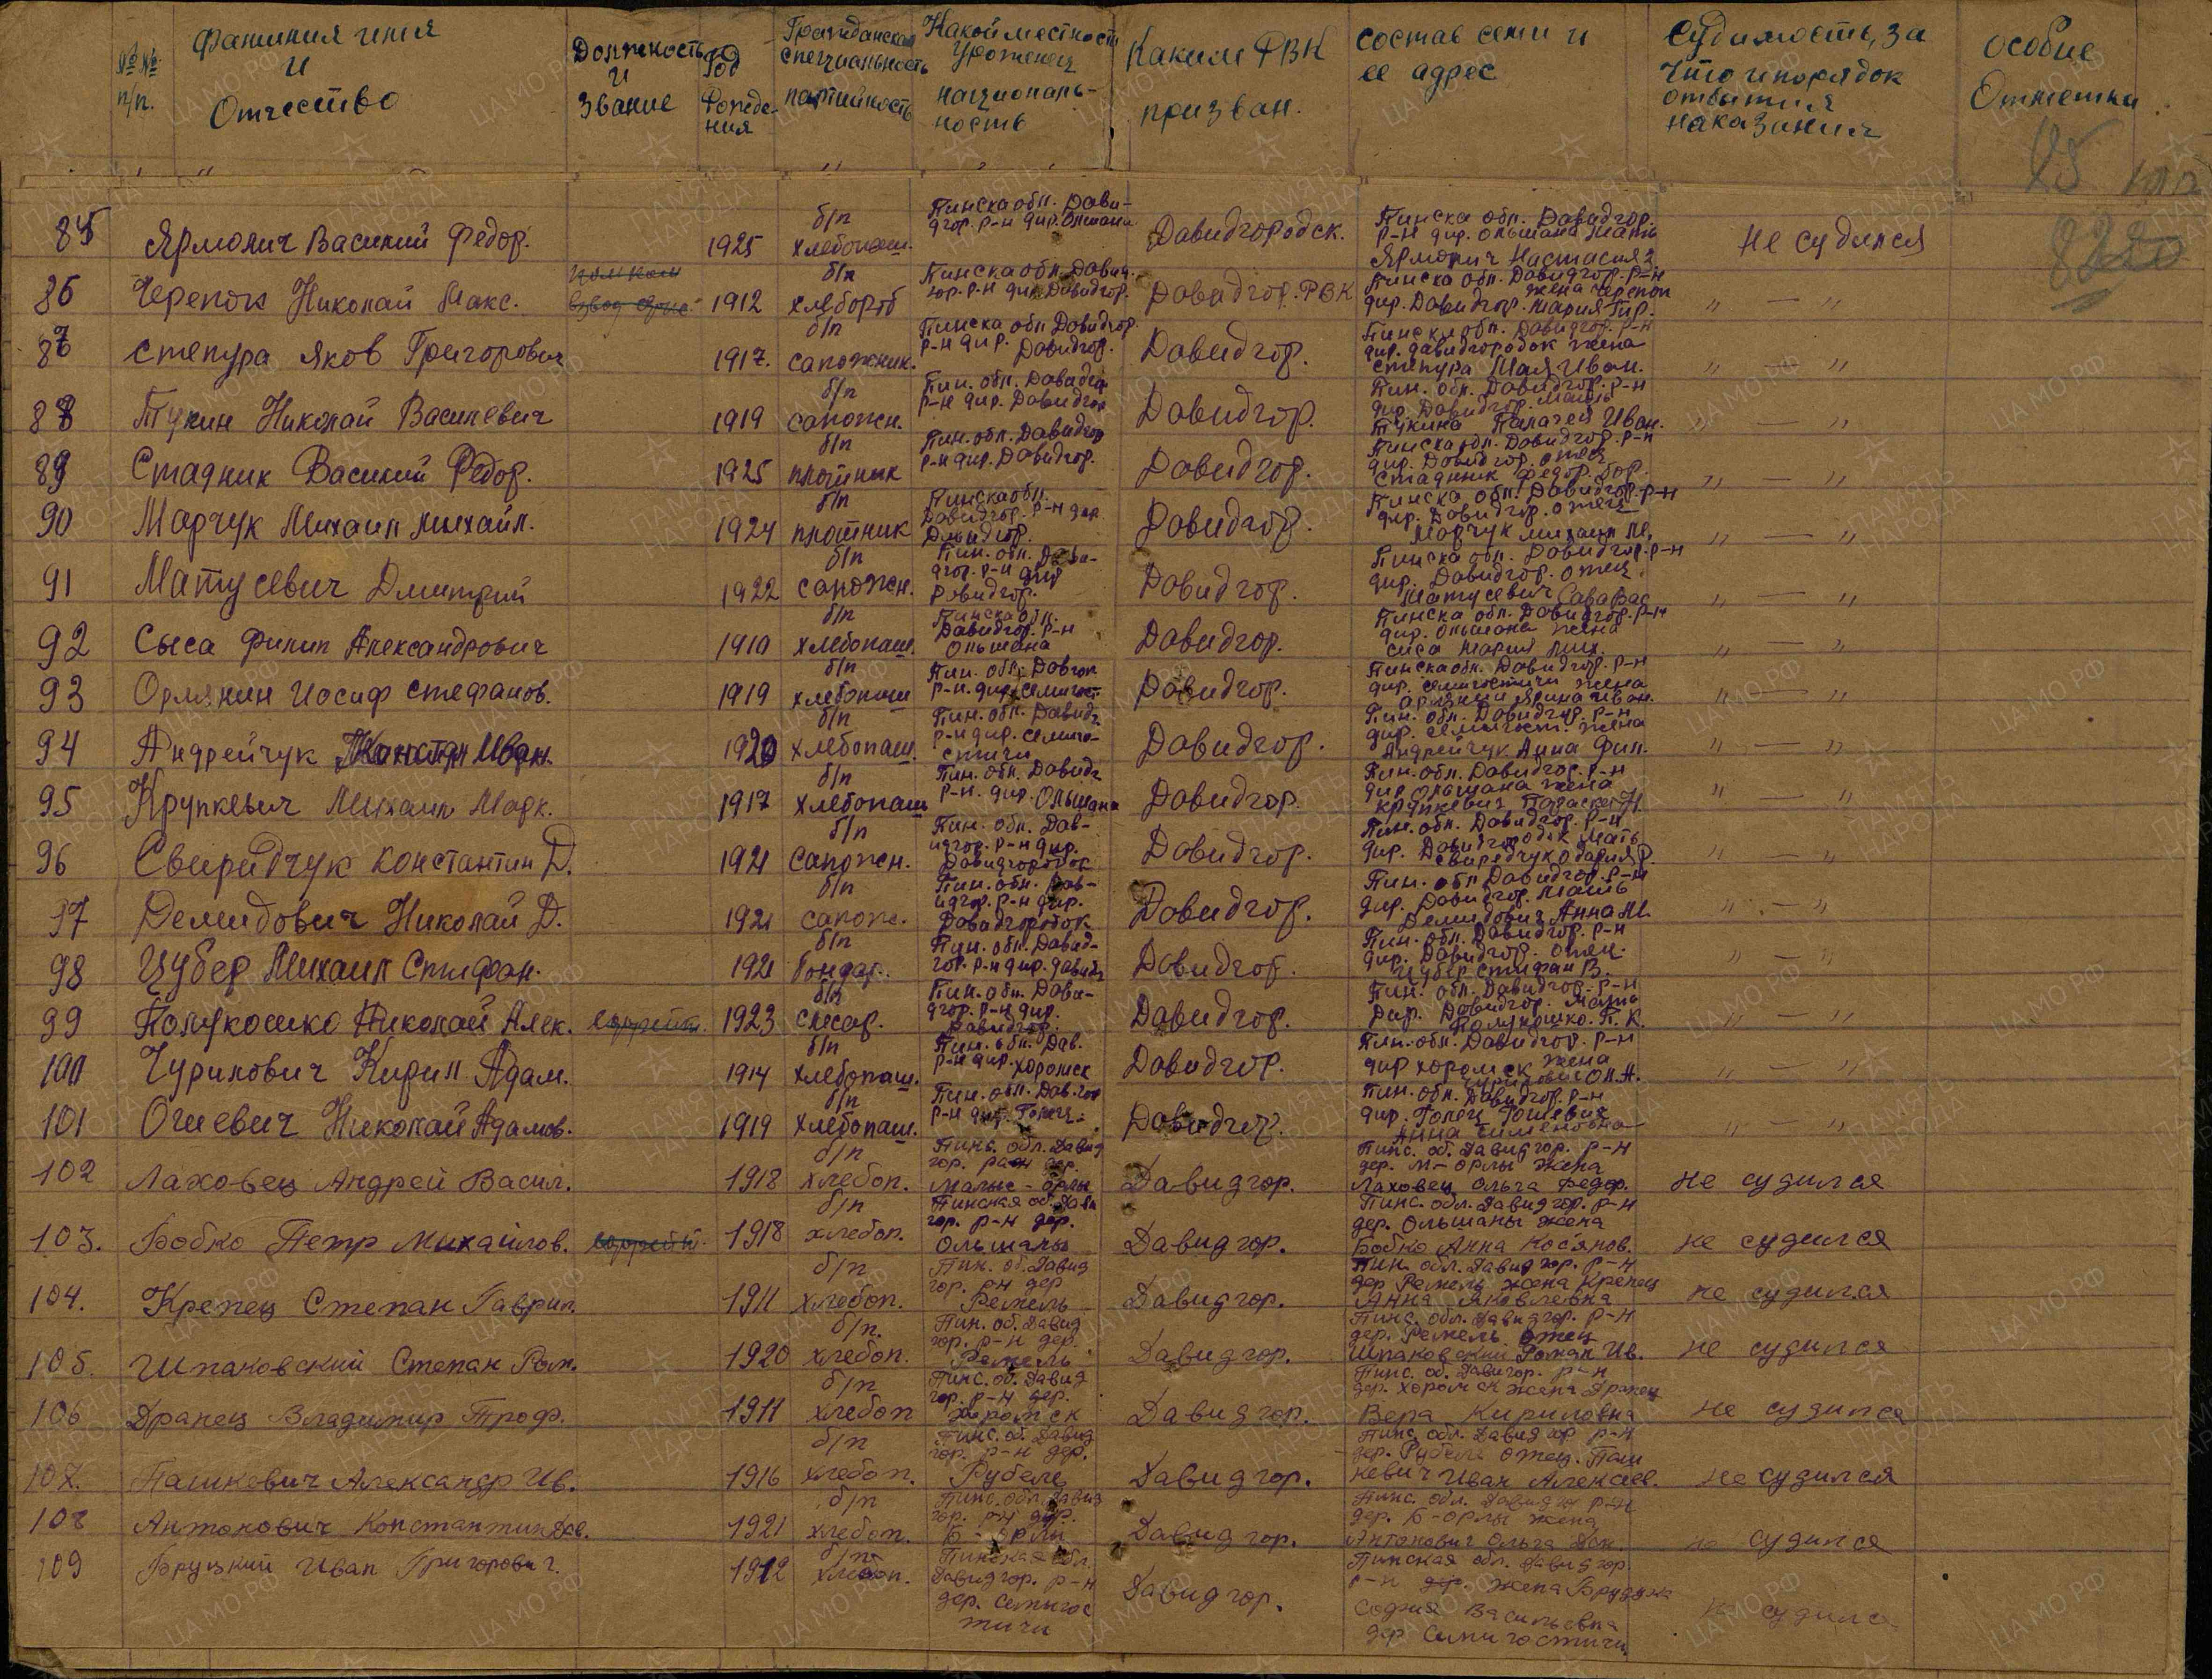 №№ п/п.
Фамилия имя и Отчество
Должность и Звание
Год Рожде-ния
Гражданская специальность партийность
Какой местности Уроженец националь-ность
Каким РВК призван.
состав семи и ее адрес
Судимость, за что и порядок отбытия наказания
особие Отметки
85 Ярмолич Василий Федор. 1925 б/п хлебопаш. Пинска обл. Дави-дгор. р-н дир. Ольшани Давидгородск. Пинска обл. Давидгор. р-н дир. Ольшана мать Ярмолич Настасия не судился
8220
86 Черепок Николай Макс. 1912 б/п хлебороб Пинска обл. Давид. гор. р-н дир. Давидгор. Давидгор. РВК Пинска обл. Давидгор. р-н жена Черепок дир. Давидгор. Мария Гир. „ — „
87 Степура Яков Григорович 1917. б/п сапожник. Пинска обл Давидгор. р-н дир. Давидгор. Давидгор. Пинска обл. Давидгор. р-н дир. Давидгородок жена Степура Мая Иван. „ — „
88 Тукин Николай Василевич 1919 б/п сапожн. Пин. обл. Давидгор р-н дир. Давидгор Давидгор. Пин. обл. Давидгор. р-н дир. Давидгор. мать Тукина Палагея Иван. „ „
89 Стадник Василий Федор. 1925 б/п плотник Пин. обл. Давидгор р-н дир. Давидгор. Давидгор. Пинска обл. Давидгор. р-н дир. Давидгор. отец Стадник Федор. „ — „
90 Марчук Михаил Михайл. 1924 б/п плотник Пинска обл. Давидгор. р-н дир Давидгор. Давидгор. Пинска обл. Давидгор. р-н дир. Давидгор. отец Марчук Михаил М. „ — „
91 Матусевич Дмитрий 1922 б/п сапожн. Пин. обл. Дави-дгор. р-н дир Давидгор. Давидгор. Пинска обл. Давидгор. р-н дир. Давидгор. отец Матусевич Сава „ — „
92 Сыса Филип Александрович 1910 б/п хлебопаш. Пинска обл. Давидгор. р-н Ольшана Давидгор. Пинска обл. Давидгор. р-н дир. Ольшана жена Сиса Мария Мих. „ — „
93 Орлянин Иосиф Стефанов. 1919 б/п хлебопаш Пин. обл. Давгор р-н. дир. Семигост. Давидгор. Пинска обл. Давидгор. р-н дир. Семигостичи жена Ярина Иван. „ — „
94 Андрейчук Констан Иван. 1920 б/п хлебопаш. Пин. обл. Давидг. р-н дир. Семиго-стичи Давидгор. Пин. обл. Давидгор. р-н дир. Семигост. жена Андрейчук Анна Фил. „ — „
95 Крупкевич Михаил Марк. 1917 б/п хлебопаш Пин. обл. Давидг р-н. дир. Ольшана Давидгор. Пин. обл. Давидгор. р-н дир Ольшана жена Крупкевич Параске „ — „
96 Свиридчук Константин Д. 1921 б/п сапожн. Пин. обл. Дав-идгор. р-н дир. Давидгородок Давидгор. Пин. обл. Давидгор. р-н дир. Давидгородок мать Свиредчук Одария Р. „ — „
97 Демидович Николай Д. 1921 б/п сапож. Пин. обл. Дав-идгор. р-н дир. Давидгородок Давидгор. Пин. обл Давидгор. р-н дир. Давидгор. мать Демидович Анна М. „ — „
98 Цубер Михаил Стифан. 1921 б/п Бондар. Пин. обл. Давид-гор. р-н дир. Давидг Давидгор. Пин. обл. Давидгор. р-н дир. Давидгор. отец. Цубер Стифан В. „ — „
99 Полукошко Николай Алек. ефрейт. 1923 б/п слесар. Пин. обл. Дави-дгор. р-н дир. Давидгор. Давидгор. Пин. обл. Давидгор. р-н Дир. Давидгор. Мать Полукошко. П. К. „ — „
100 Чурилович Кирил Адам. 1914 б/п хлебопаш. Пин. обл. Дав. р-н дир. Хоромск Давидгор. Пин. обл. Давидгор. р-н дир Хоромск жена Чурилович Ол. А. „ — „
101 Огиевич Николай Адамов. 1919 б/п хлебопаш. Пин. обл. Дав. гор р-н дир. Голец. Давидгор. Пин. обл. Давидгор. р-н дир. Голец Анна Сименовна „ — „
102 Лаховец Андрей Васил. 1918 б/п хлебоп. Пинс. обл. Давид гор. район дер. Малые - Орлы Давидгор. Пинс. об. Давидгор. р-н дер. М-Орлы жена Лаховец Ольга Федор. не судился
103. Бобко Петр Михайлов. ефрейт. 1918 б/п хлебоп. Пинская об. Дави гор. р-н дер. Ольшаны Давидгор. Пинс. обл. Давидгор. р-н дер. Ольшаны жена Бобко Анна Косянов. не судился
104. Крепец Степан Гаврил. 1911 б/п хлебоп. Пин. об. Давид гор. р-н дер Ремель Давидгор. Пин. обл. Давидгор. р-н дер Ремель жена Крепец Анна Яковлевна не судился
105. Шпаковский Степан Ром. 1920 б/п. хлебоп. Пин. об. Давид гор. р-н дер. Ремель Давидгор. Пинс. обл. Давидгор. р-н дер. Ремель отец Шпаковский Роман Ив. не судился
106 Драпец Владимир Троф. 1911 б/п хлебоп Пинс. об. Давид гор. р-н дер. Хоромск Давидгор. Пинс. об. Давигор. р-н дер. Хоромск жена Драпец Вера Кириловна не судился
107. Пашкевич Александр Ив. 1916 б/п хлебоп. Пинс. об. Давид гор. р-н дер. Рубель Давидгор. Пинс. обл. Давидгор р-н дер. Рубель отец. Паш кевич Иван Алексев. не судился
108 Антонович Константин 1921 б/п хлебоп. Пинс. обл. Давид гор. р-н дер. Б - Орлы Давидгор. Пинс. обл. Давидго р-н дер. Б-Орлы жена Антонович Ольга не судился
109 Бруцкий Иван Григорович. 1912 б/п хлебоп. Пинская обл. Давидгор. р-н дер. Семигос тичи Давидгор. Пинская обл. Давидгор р-н дер. жена София Васильевна дер Семигостичи не судился